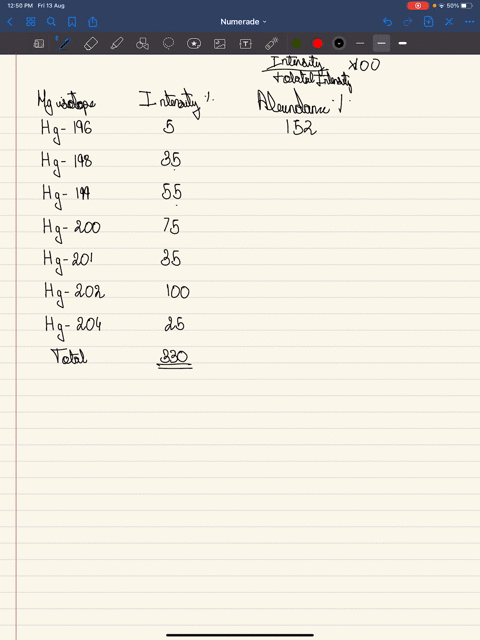 12:50 PM Fri 13 Aug 50%
Numerade
Intensity ×100
Total Intensity
Hg isotope Intensity % Abundance %
Hg-196 5 152
Hg-198 35
Hg-199 55
Hg-200 75
Hg-201 35
Hg-202 100
Hg-204 25
Total 330